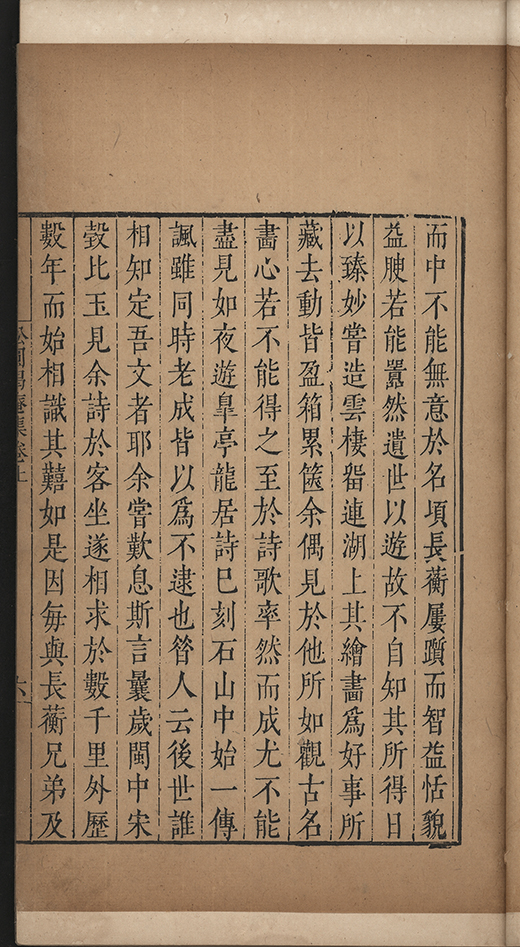 而中不能無意於名頃長蘅屢躓而智益恬貌
益腴若能囂然遺世以遊故不自知其所得日
以臻妙嘗造雲棲畱連湖上其繪畵爲好事所
藏去動皆盈箱累篋余偶見於他所如觀古名
畵心若不能得之至於詩歌率然而成尤不能
盡見如夜遊臯亭龍居詩巳刻石山中始一傳
諷雖同時老成皆以爲不逮也昝人云後世誰
相知定吾文者耶余嘗歎息斯言曩歲閩中宋
瑴比玉見余詩於客坐遂相求於數千里外歷
數年而始相識其囏如是因每與長蘅兄弟及
松圓偈庵集卷上
六